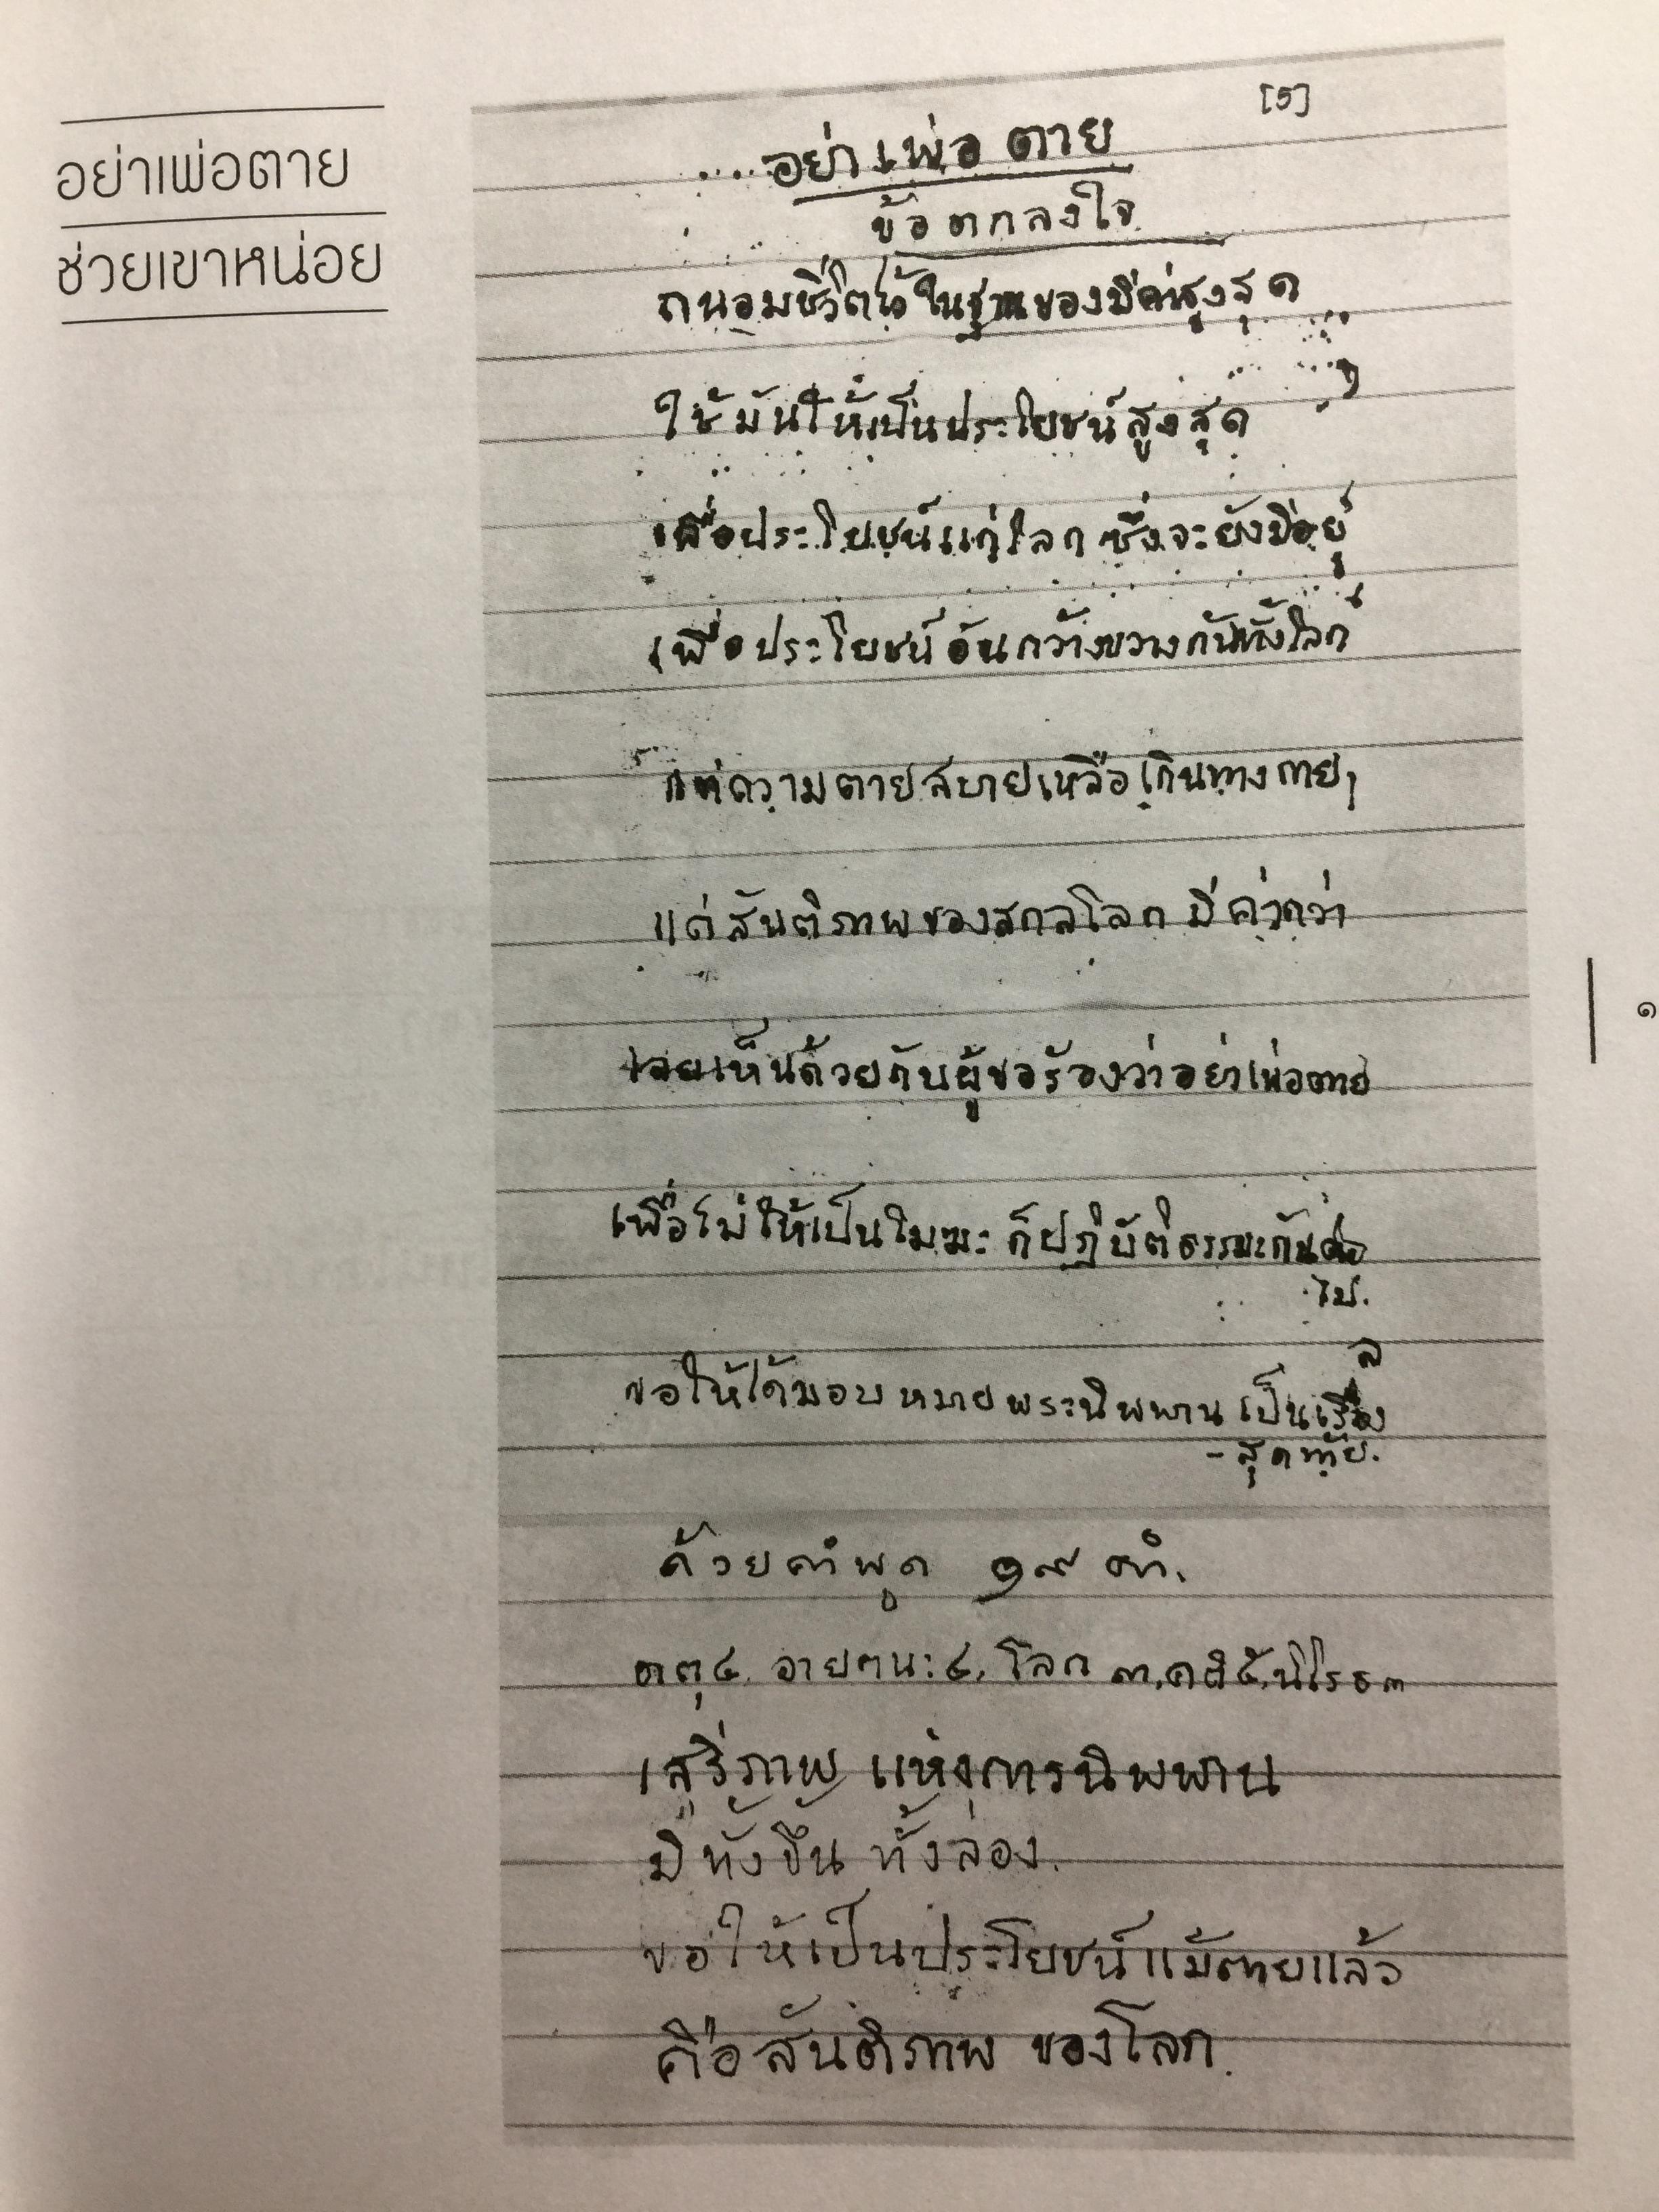 อย่าเพ่อตาย
ช่วยเขาหน่อย
[5]
....อย่าเพ่อ ตาย
ข้อตกลงใจ
ถนอมชีวิตไว้ในฐานะของมีค่าสูงสุด
ใช้มันให้เป็นประโยชน์สูงสุด
เพื่อประโยชน์แก่โลก ซึ่งจะยังมีอยู่
เพื่อประโยชน์อันกว้างขวางกันทั้งโลก
แต่ความตายสบายเหลือเกินทางกาย
แต่สันติภาพของสกลโลก มีค่ากว่า
เลยเห็นด้วยกับผู้ขอร้องว่าอย่าเพ่อตาย
เพื่อไม่ให้เป็นโมฆะ ก็ปฏิบัติธรรมะกันต่อ
ไป.
ขอให้ได้มอบหมายพระนิพพาน เป็นเรื่อง
-สุดท้าย.
ด้วยคำพูด ๑๙ คำ.
ธาตุ ๔, อายตนะ ๔, โลก ๓, คติ ๕, นิโรธ ๓
เสรีภาพ แห่งการนิพพาน
มีทั้งขึ้น ทั้งล่อง.
ขอให้เป็นประโยชน์แม้ตายแล้ว
คือสันติภาพ ของโลก.
๑